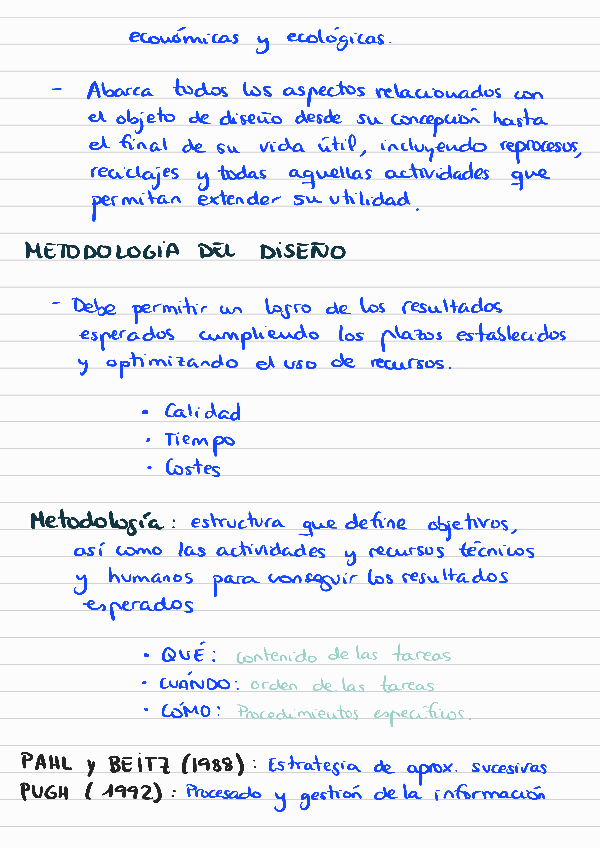 económicas y ecológicas.
- Abarca todos los aspectos relacionados con
el objeto de diseño desde su concepción hasta
el final de su vida útil, incluyendo reprocesos,
reciclajes y todas aquellas actividades que
permitan extender su utilidad.
METODOLOGIA DEL DISEÑO
- Debe permitir un logro de los resultados
esperados cumpliendo los plazos establecidos
y optimizando el uso de recursos.
• Calidad
• Tiempo
• Costes
Metodología: estructura que define objetivos,
así como las actividades y recursos técnicos
y humanos para conseguir los resultados
esperados
• QUÉ: contenido de las tareas
• CUÁNDO: orden de las tareas
• CÓMO: Procedimientos específicos.
PAHL y BEITZ (1988): Estrategia de aprox. sucesivas
PUGH (1992): Procesado y gestión de la información